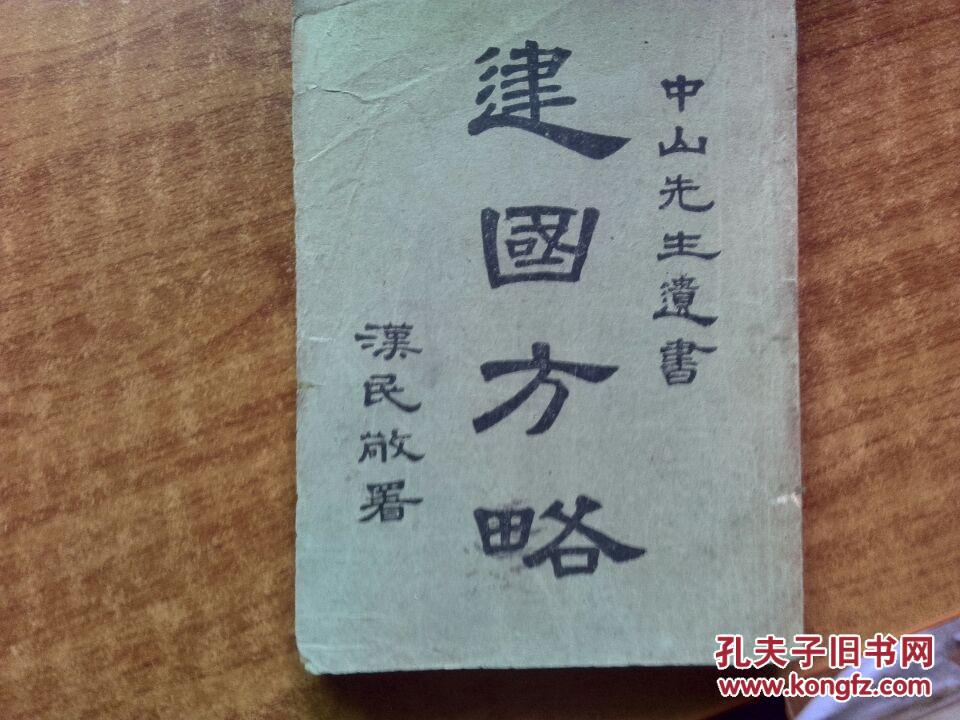 中山先生遺書
建國方略
漢民敬署
孔夫子旧书网
www.kongfz.com